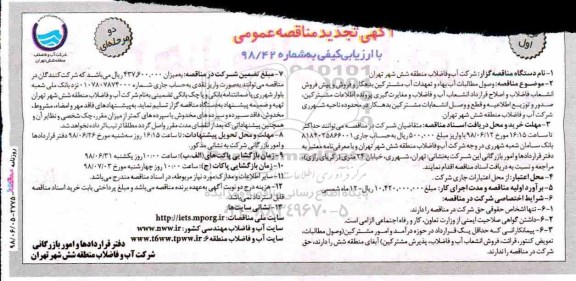 آگهی تجدید مناقصه عمومی
با ارزیابی کیفی به‌شماره ۹۸/۴۲
نوبت اول
دو مرحله‌ای
شرکت آب و فاضلاب منطقه شش تهران
۱- نام دستگاه مناقصه گزار: شرکت آب و فاضلاب منطقه شش شهر تهران
۲- موضوع مناقصه: وصول مطالبات آب بهاء و تعهدات آب مشترکین بدهکار و فروش و پیش فروش
انشعاب فاضلاب و اصلاح قرارداد انشعاب آب و فاضلاب و مغایرت گیری پرونده اطلاعات مشترکین،
صدور و توزیع اخطاریه و قطع و وصل انشعابات مشترکین بدهکار در محدوده ناحیه شهری
۳- مهلت خرید و محل دریافت اسناد مناقصه: متقاضیان شرکت در مناقصه می توانند حداکثر
تا ساعت ۱۶:۱۵ مورخ ۹۸/۰۶/۱۲ با واریز مبلغ ۵۰۰/۰۰۰ ریال به حساب جاری
بانک سامان شعبه شهرری در وجه شرکت آب و فاضلاب منطقه شش شهر تهران و با معرفی نامه معتبر به
دفتر قراردادها و امور بازرگانی این شرکت به‌نشانی: تهران، شهرری، خیابان ۲۴ متری
مراجعه و نسبت به دریافت اسناد مناقصه اقدام نمایند.
۴- محل اعتبار: از محل اعتبارات جاری شرکت
۵- برآورد اولیه مناقصه و مدت اجرای کار: مبلغ ۱۰/۴۲۰/۰۰۰/۰۰۰ ریال - ۱۲ ماه شمسی
۶- شرایط اختصاصی شرکت در مناقصه:
۶-۱- تنها اشخاص حقوقی حق شرکت در مناقصه را دارند.
۶-۲- داشتن گواهی صلاحیت ایمنی از وزارت تعاون، کار و رفاه اجتماعی الزامی است.
۶-۳- پیمانکارانی که حداقل یک قرارداد در حوزه درآمد و امور مشترکین (وصول مطالبات،
تعویض کنتور، قرائت، فروش انشعاب آب و فاضلاب، پذیرش مشترکین) آبفای منطقه شش را دارند، حق
شرکت در مناقصه را ندارند.
۷- مبلغ تضمین شرکت در مناقصه: به‌میزان ۴۳۷/۶۰۰/۰۰۰ ریال می‌باشد که شرکت‌کنندگان در
مناقصه می توانند به‌صورت واریز نقدی به حساب جاری شماره ۱۰۷۸۰۷۸۷۴۰۰۱ نزد بانک ملی شعبه
بلوار شهرری یا ضمانت‌نامه بانکی و یا چک بانکی تضمینی به‌نام شرکت آب و فاضلاب منطقه شش شهر تهران
تهیه و ضمیمه پیشنهاد به‌دستگاه مناقصه گزار تسلیم نمایند. به پیشنهادهای فاقد مهر و امضاء، مشروط،
مخدوش، فاقد سپرده و سپرده‌های مخدوش یا سپرده‌های کمتر از میزان مقرر، چک شخصی و نظایر آن و
همچنین پیشنهاداتی که بعد از انقضای مدت مقرر واصل گردد مطلقا ترتیب اثر داده نخواهد شد.
۸- مهلت و محل تحویل پیشنهادات: تا ساعت ۱۶:۱۵ روز سه‌شنبه مورخ ۹۸/۰۶/۲۶ دفتر قراردادها
و امور بازرگانی شرکت به نشانی مذکور.
۹- زمان بازگشایی پاکات (الف، ب): ساعت ۱۰:۰۰ روز یکشنبه ۹۸/۰۶/۳۱
۱۰- زمان بازگشایی پاکات (ج): ساعت ۱۰:۰۰ روز چهارشنبه مورخ ۹۸/۰۷/۰۳
۱۱- سایر اطلاعات و مدارک مورد نیاز مربوطه، در اسناد مناقصه مندرج می باشد.
۱۲- هزینه درج دو نوبت آگهی به‌عهده برنده مناقصه می باشد و مبلغ پرداختی بابت خرید اسناد مناقصه
قابل استرداد نمی باشد.
۱۳- نشانی سایت‌ها:
سایت ملی مناقصات: http://iets.mporg.ir
سایت آب و فاضلاب مهندسی کشور: www.nww.ir
سایت آب و فاضلاب منطقه ۶: www.t6ww.tpww.ir
دفتر قراردادها و امور بازرگانی
شرکت آب و فاضلاب منطقه شش شهر تهران